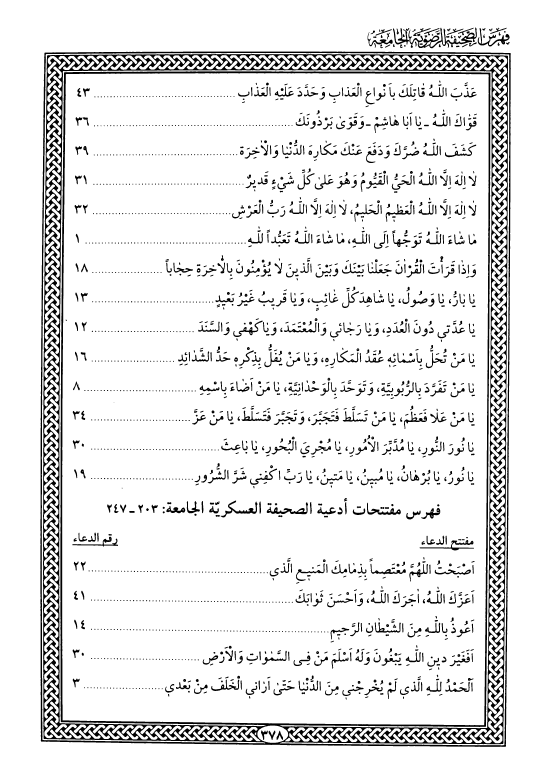 فهرس الصحيفة الرضوية الجامعة
عَذَّبَ اللّٰهُ قٰاتِلَكَ بِاَنْوٰاعِ الْعَذٰابِ وَحَدَّدَ عَلَيْهِ الْعَذٰابَ ........ ٤٣
قَوّٰاكَ اللّٰهُ ـ يٰا اَبٰا هٰاشِمٍ ـ وَقَوّىٰ بِرْذَوْنَكَ ........ ٣٦
كَشَفَ اللّٰهُ ضُرَّكَ وَدَفَعَ عَنْكَ مَكٰارِهَ الدُّنْيٰا وَالْاٰخِرَةِ ........ ٣٩
لٰا اِلٰهَ اِلَّا اللّٰهُ الْحَيُّ الْقَيُّومُ وَهُوَ عَلىٰ كُلِّ شَيْءٍ قَديرٌ ........ ٣١
لٰا اِلٰهَ اِلَّا اللّٰهُ الْعَظيمُ الْحَليمُ، لٰا اِلٰهَ اِلَّا اللّٰهُ رَبُّ الْعَرْشِ ........ ٣٢
مٰا شٰاءَ اللّٰهُ تَوَجُّهاً اِلَى اللّٰهِ، مٰا شٰاءَ اللّٰهُ تَعَبُّداً لِلّٰهِ ........ ١
وَاِذٰا قَرَأْتَ الْقُرْاٰنَ جَعَلْنٰا بَيْنَكَ وَبَيْنَ الَّذينَ لٰا يُؤْمِنُونَ بِالْاٰخِرَةِ حِجٰاباً ........ ١٨
يٰا بٰارُّ، يٰا وَصُولُ، يٰا شٰاهِدَ كُلِّ غٰائِبٍ، وَيٰا قَريبُ غَيْرُ بَعيدٍ ........ ١٣
يٰا عُدَّتي دُونَ الْعُدَدِ، وَيٰا رَجٰائي وَالْمُعْتَمَدَ، وَيٰا كَهْفي وَالسَّنَدَ ........ ١٢
يٰا مَنْ تُحَلُّ بِاَسْمٰائِهِ عُقَدُ الْمَكٰارِهِ، وَيٰا مَنْ يُفَلُّ بِذِكْرِهِ حَدُّ الشَّدٰائِدِ ........ ١٦
يٰا مَنْ تَفَرَّدَ بِالرُّبُوبِيَّةِ، وَتَوَحَّدَ بِالْوَحْدٰانِيَّةِ، يٰا مَنْ اَضٰاءَ بِاسْمِهِ ........ ٨
يٰا مَنْ عَلٰا فَعَظُمَ، يٰا مَنْ تَسَلَّطَ فَتَجَبَّرَ، وَتَجَبَّرَ فَتَسَلَّطَ، يٰا مَنْ عَزَّ ........ ٣٤
يٰا نُورَ النُّورِ، يٰا مُدَبِّرَ الْاُمُورِ، يٰا مُجْرِيَ الْبُحُورِ، يٰا بٰاعِثَ ........ ٣٠
يٰا نُورُ، يٰا بُرْهٰانُ، يٰا مُبينُ، يٰا مَتينُ، يٰا رَبِّ اكْفِني شَرَّ الشُّرُورِ ........ ١٩
فهرس مفتتحات أدعية الصحيفة العسكريّة الجامعة: ٢٠٣ ـ ٢٤٧
مفتتح الدعاء رقم الدعاء
اَصْبَحْتُ اللّٰهُمَّ مُعْتَصِماً بِذِمٰامِكَ الْمَنيعِ الَّذي ........ ٢٢
اَعَزَّكَ اللّٰهُ، اٰجَرَكَ اللّٰهُ، وَاَحْسَنَ ثَوٰابَكَ ........ ٤١
اَعُوذُ بِاللّٰهِ مِنَ الشَّيْطٰانِ الرَّجيمِ ........ ١٤
اَفَغَيْرَ دينِ اللّٰهِ يَبْغُونَ وَلَهُ اَسْلَمَ مَنْ فِى السَّمٰوٰاتِ وَالْاَرْضِ ........ ٣٠
اَلْحَمْدُ لِلّٰهِ الَّذي لَمْ يُخْرِجْني مِنَ الدُّنْيٰا حَتّىٰ اَرٰانِي الْخَلَفَ مِنْ بَعْدي ........ ٣
٣٧٨